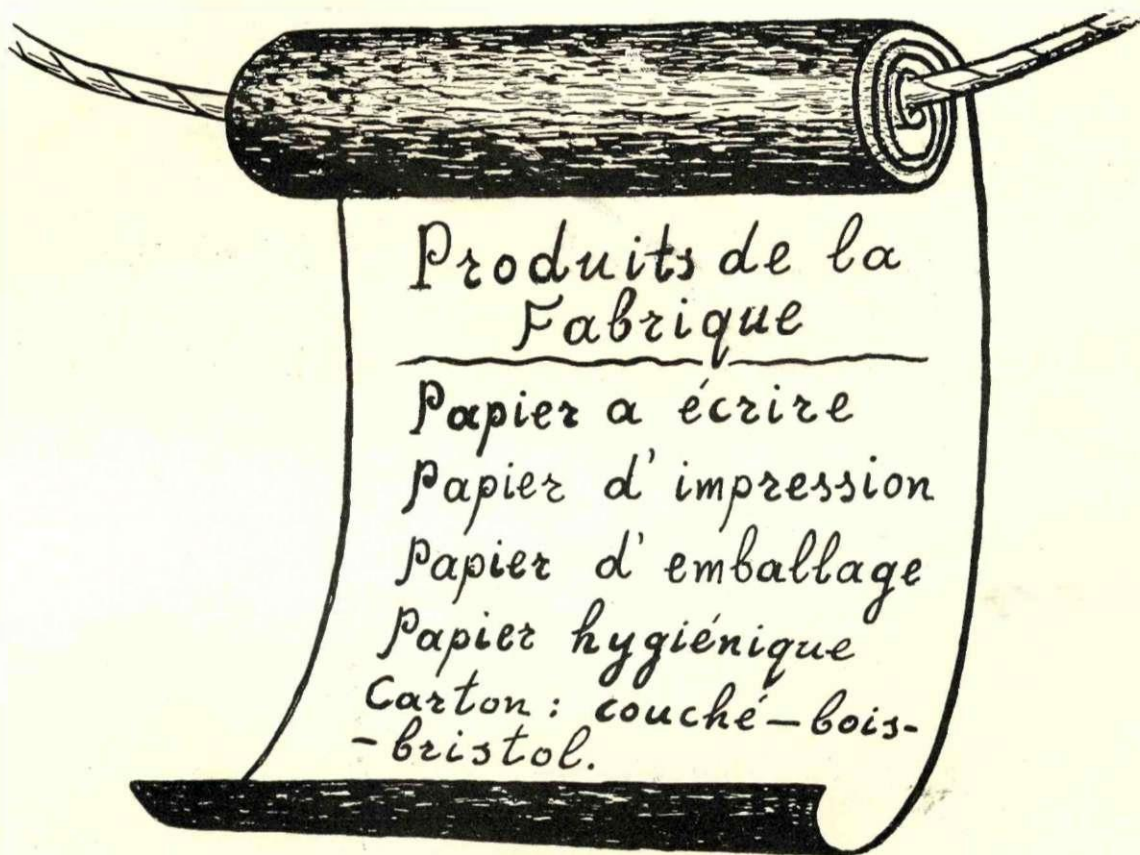 Produits de la
Fabrique
Papier a écrire
Papier d'impression
Papier d'emballage
Papier hygiénique
Carton: couché-bois-
-bristol.